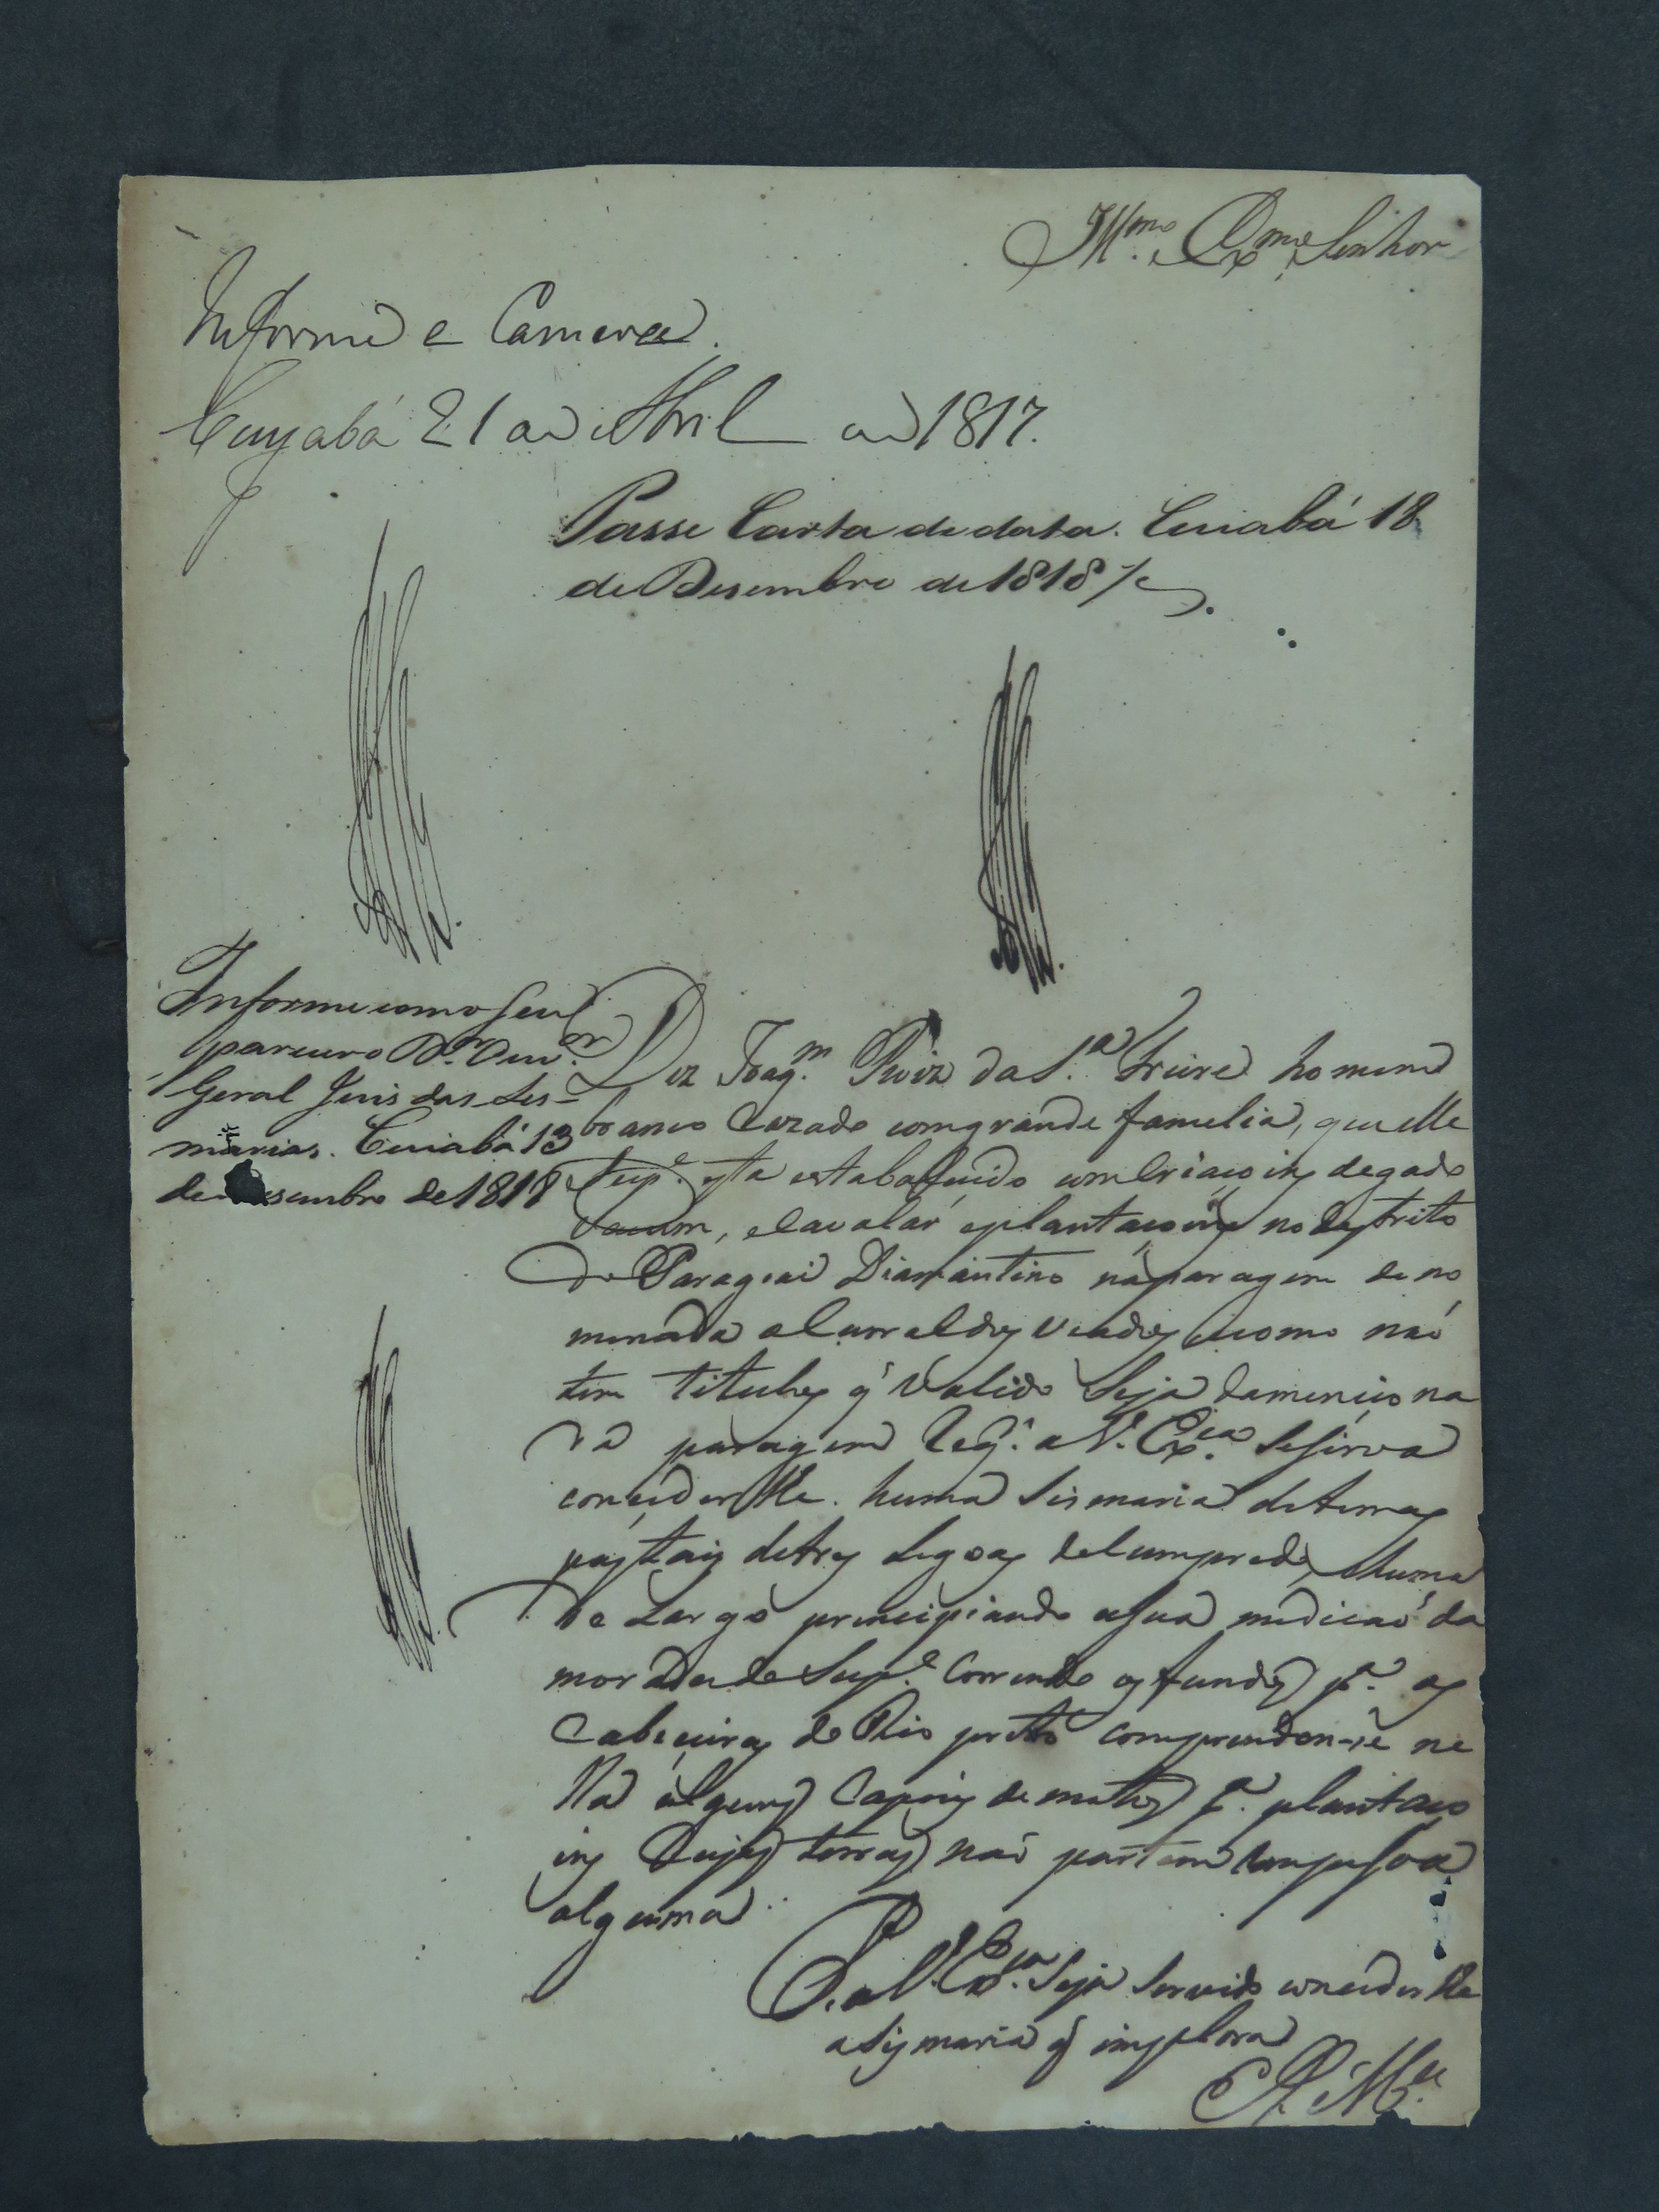 Ill.mo e Ex.mo Senhor
Informe a Camera.
Cuyabá 21 de Abril de 1817.
Passe Carta de data. Cuiabá 18
de Desembro de 1818
Informe com o seu
parecer o D.r Ouv.or
Geral Juis das Ses-
marias. Cuiabá 13
de Desembro de 1818
Diz Joaq.m Roiz da S.a Freire homem
branco Cazado com grande familia, que elle
Sup.e esta estabalescido com Criaçoins de gado
vacum, e Cavalar e plantaçoins no destrito
do Paragoai Diamantino na paragem deno
menada o Curral dos Viados e como não
tem titulos q' valido Seja da menciona
da paragem Req.r a V. Ex.cia Se Sirva
conceder lhe huma Sismaria de terras
pastais de tres Legoas de Cumprido, e huma
de Largo principiando a Sua medicaó da
morada do Sup.e Correndo os fundos p.a as
Cabiceiras do Rio preto comprendon-se ne
lla alguns Capoins de matos p.a plantaço
ins Cujas terras não partem com pessoa
alguma.
P. a V. Ex.cia Seja Servido conceder lhe
a Sismaria q' implora
E. R. M.ce